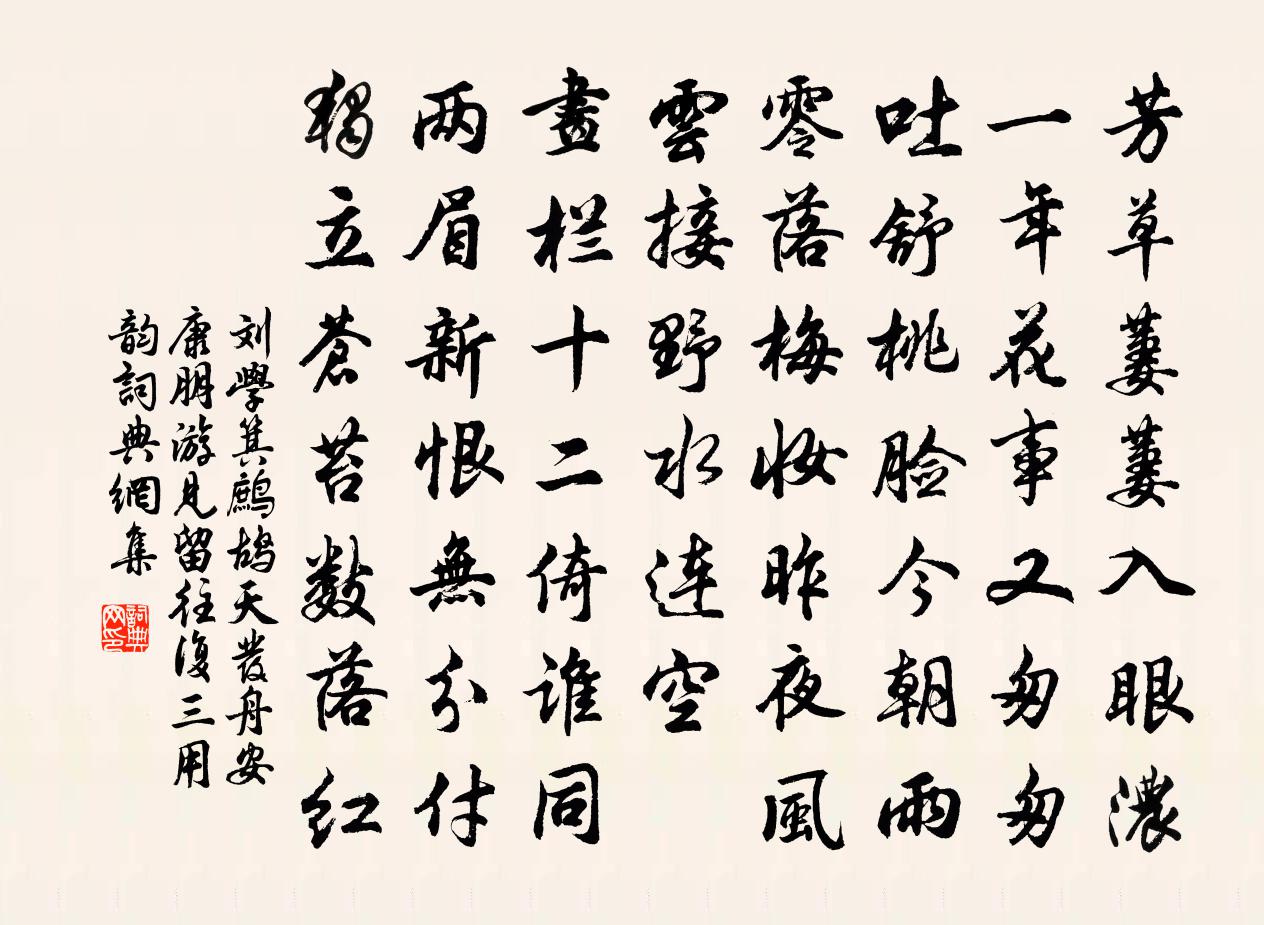 芳草萋萋入眼濃
一年花事又匆匆
吐舒桃脸今朝雨
零落梅妆昨夜風
雲接野水連空
畫栏十二倚誰同
两眉新恨無分付
獨立蒼苔數落红
刘學箕鷓鴣天發舟安
康朋游見留往復三用
韵詞典網集
詞典网印